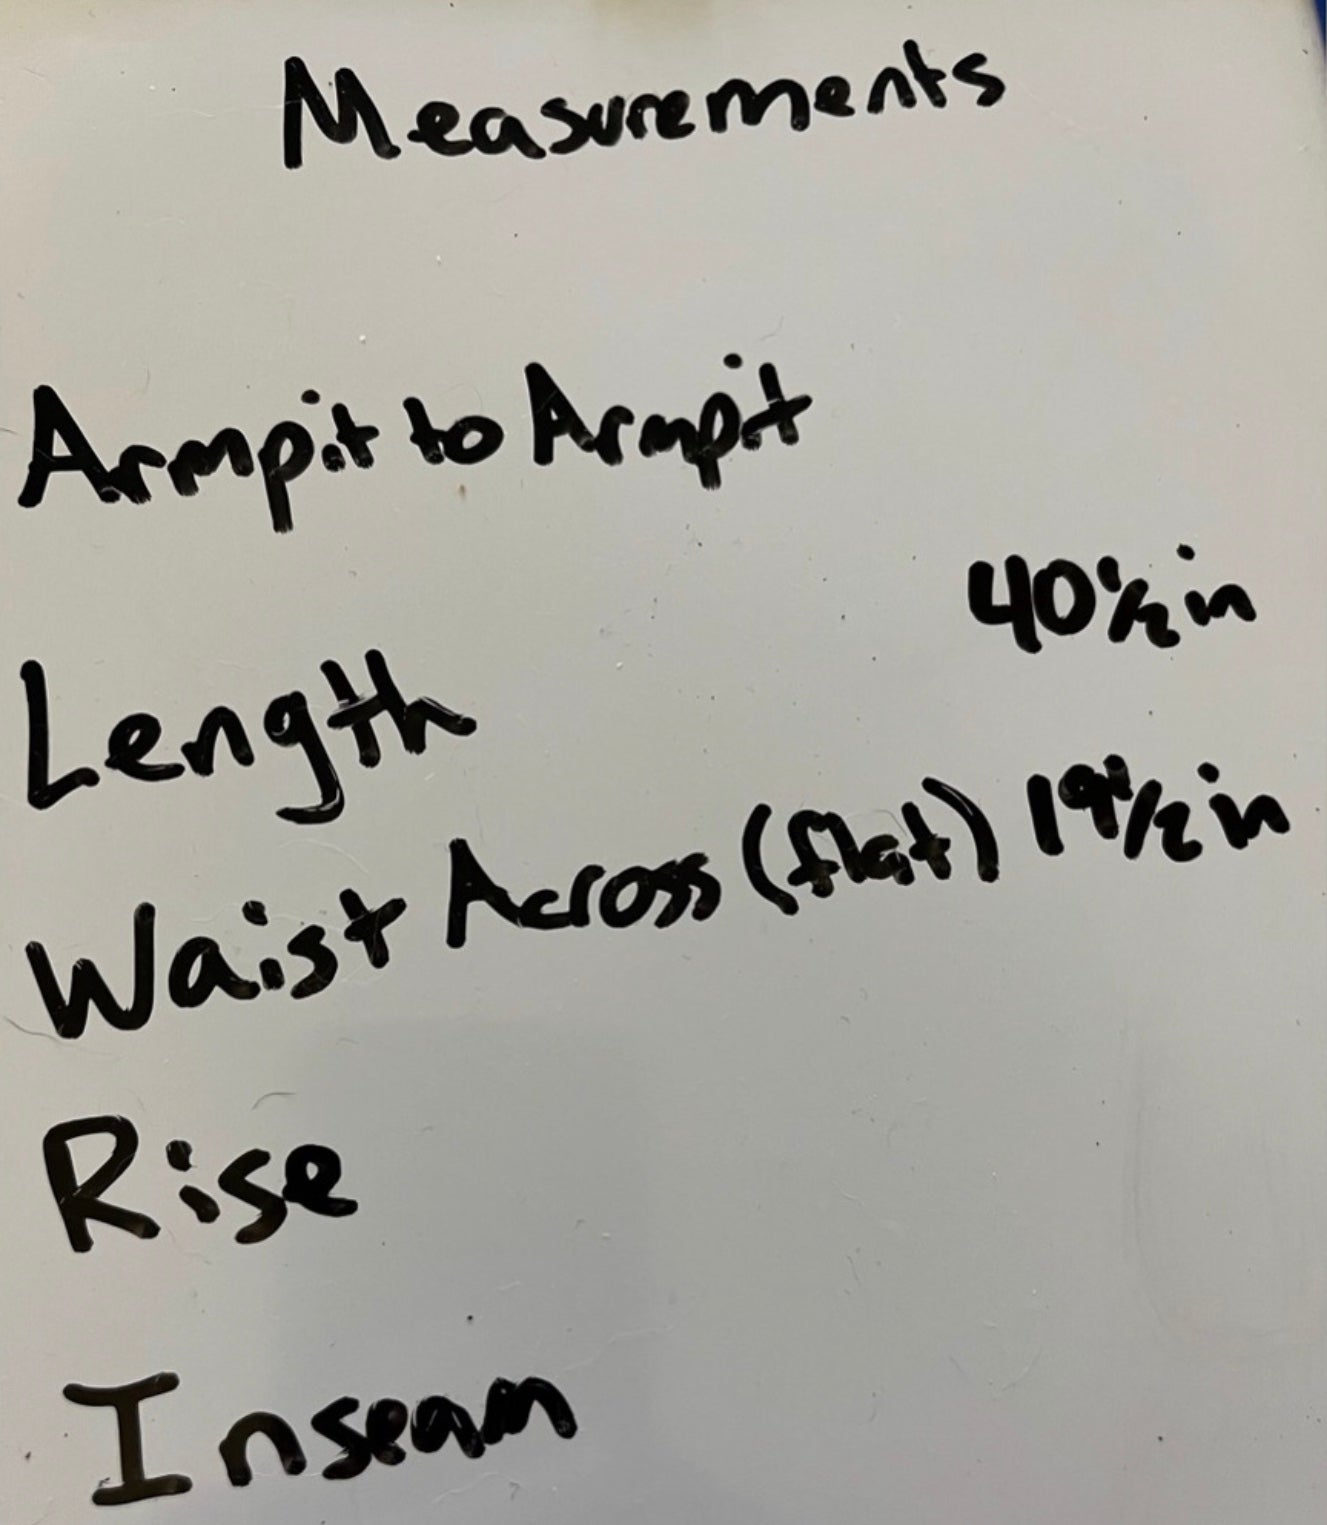 Measurements
Armpit to Armpit
Length 40 1/2 in
Waist Across (flat) 19 1/2 in
Rise
Inseam